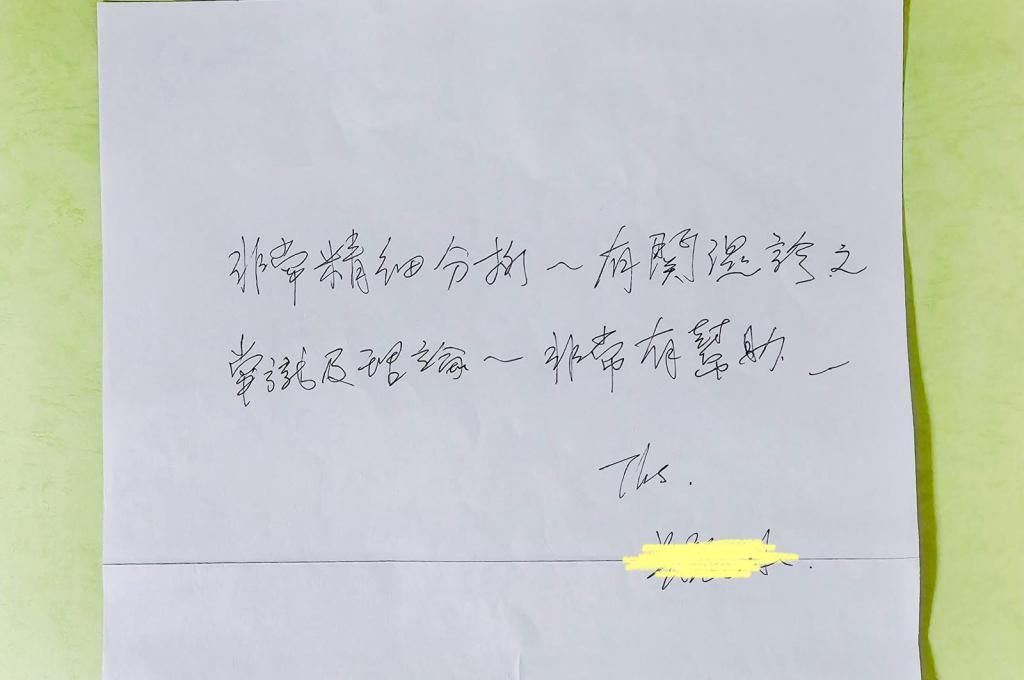 非常精細分析～有關診之
常識及理論～非常有幫助
Ths.